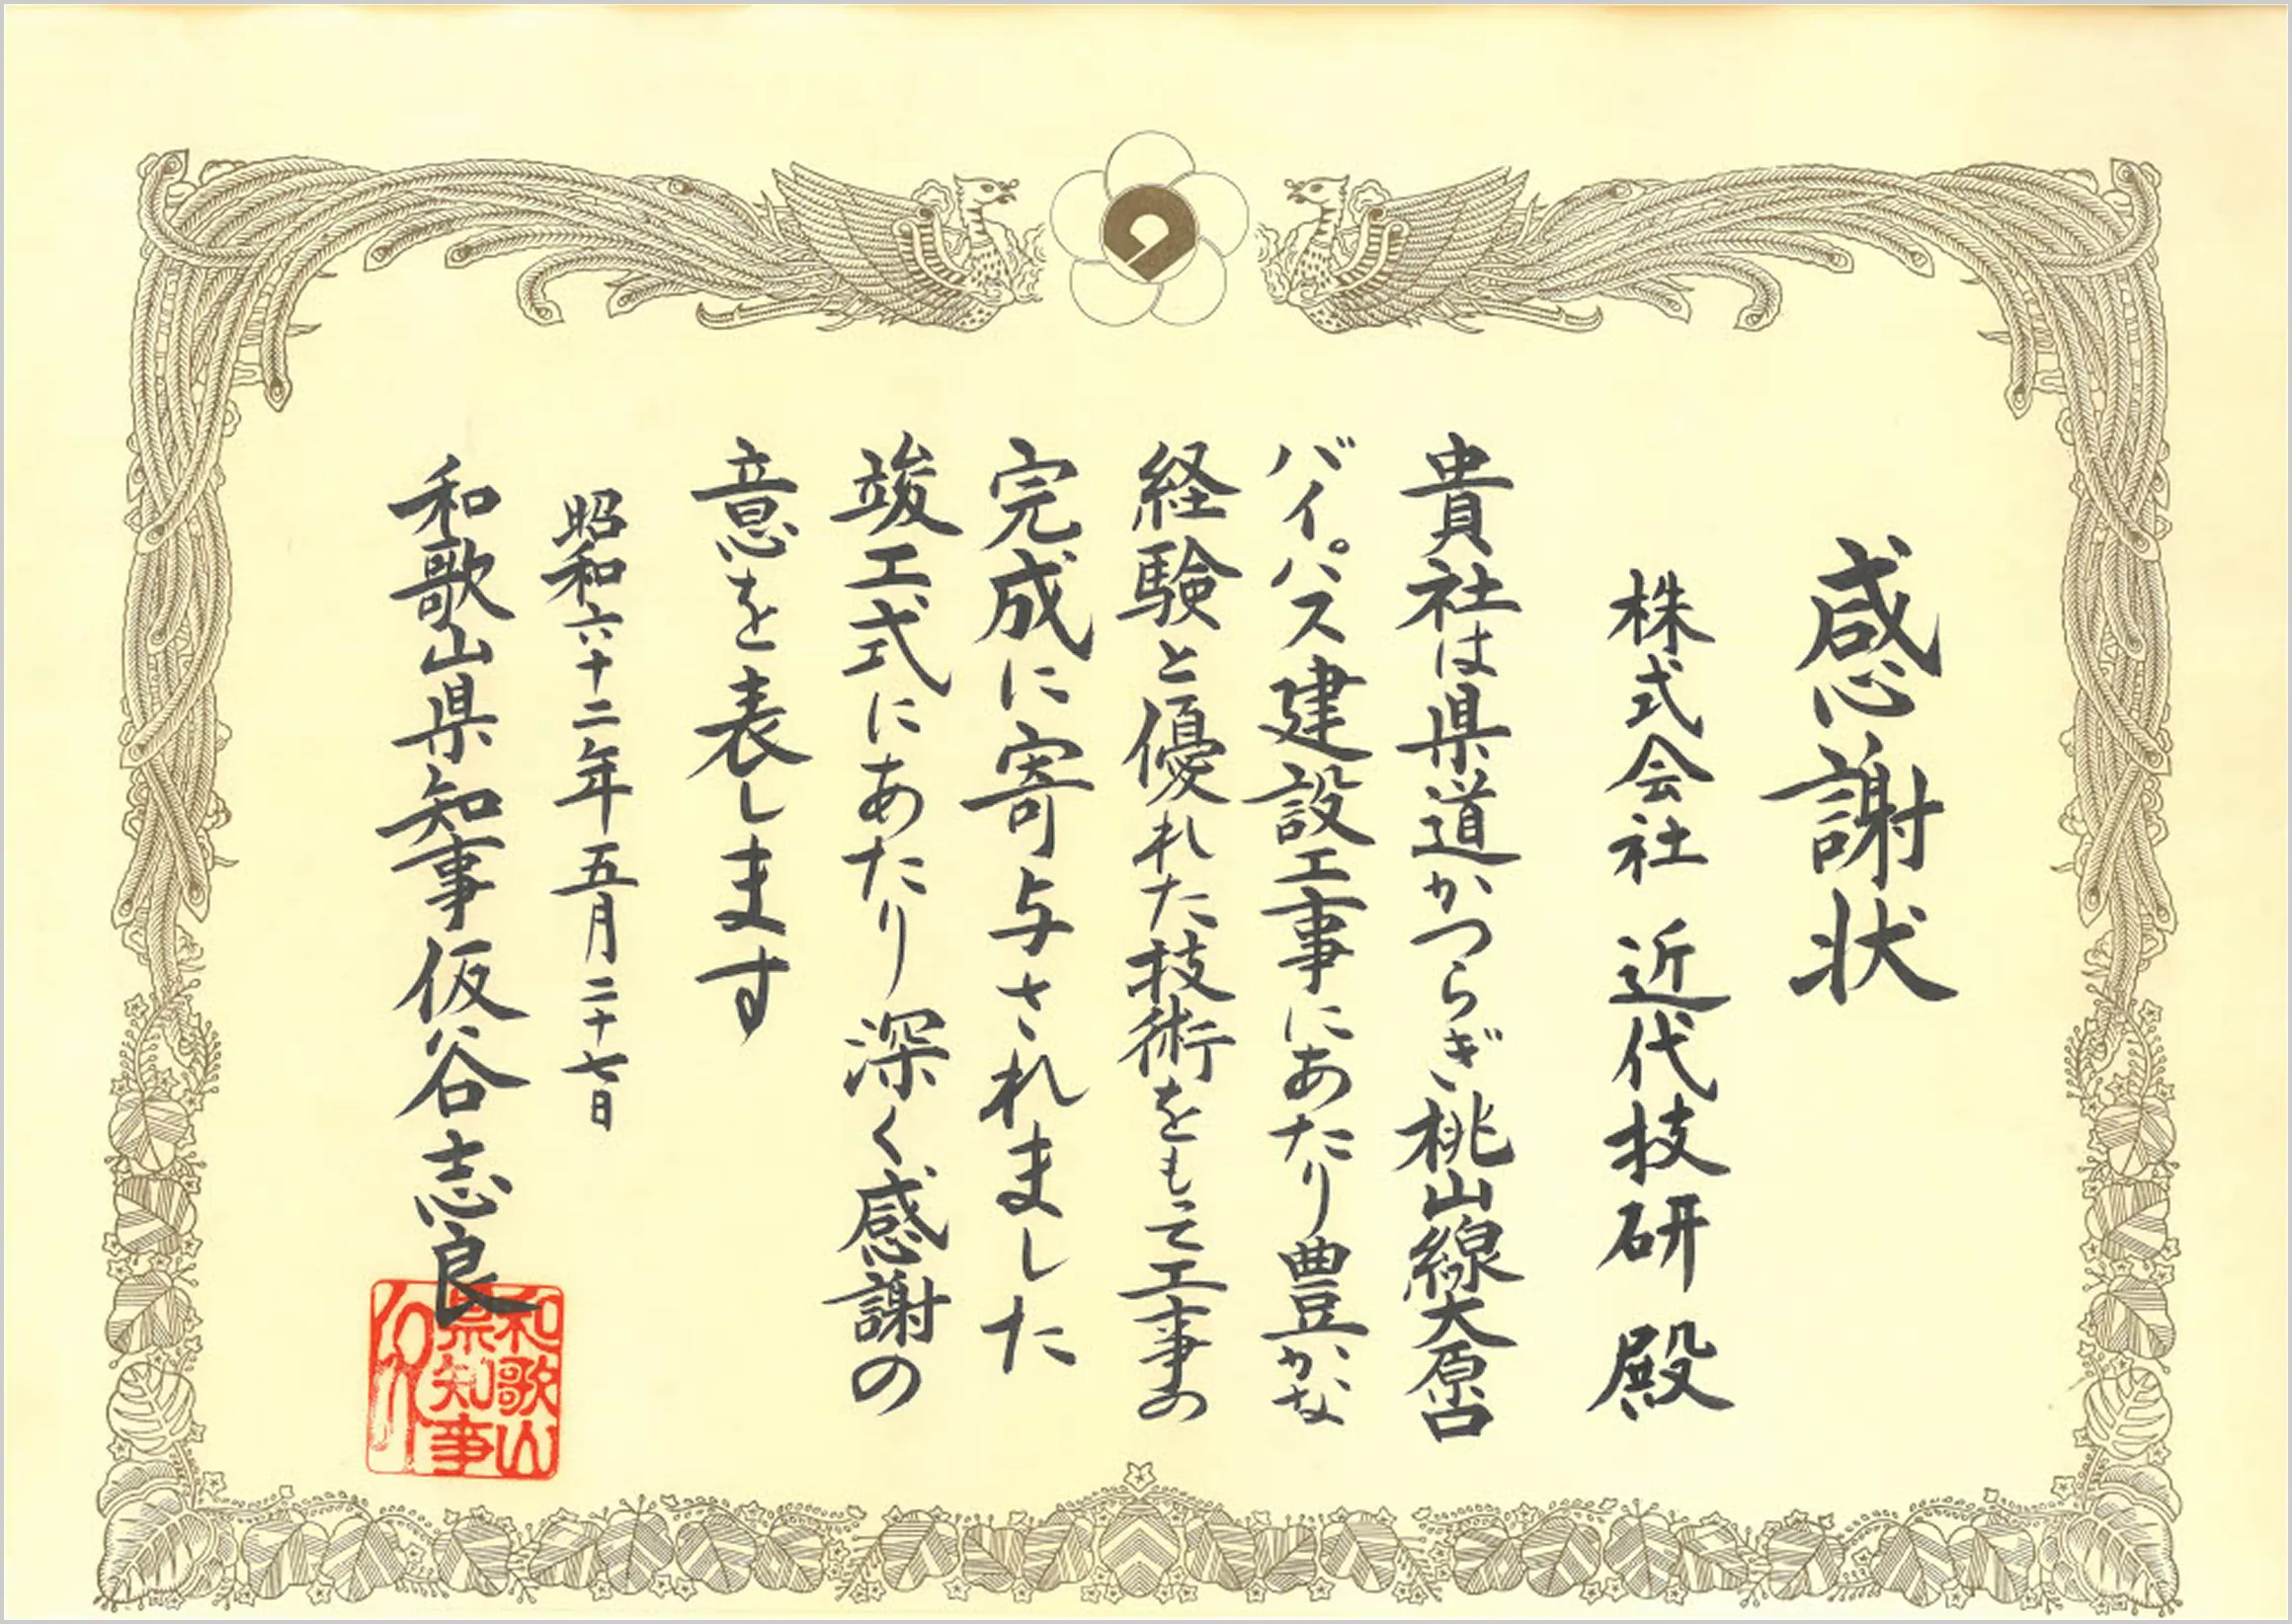 感謝状
株式会社 近代技研 殿
貴社は県道かつらぎ桃山線大原口
バイパス建設工事にあたり豊かな
経験と優れた技術をもって工事の
完成に寄与されました
竣工式にあたり深く感謝の
意を表します
昭和六十二年五月二十七日
和歌山県知事 仮谷志良
和歌山
県知事